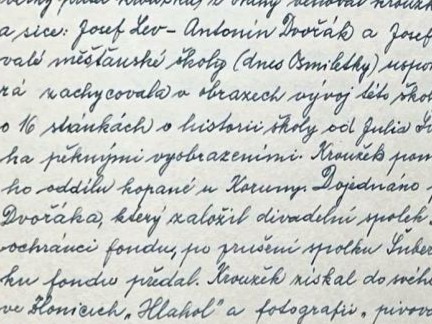 a sice: Josef Lev - Antonín Dvořák a Josef
valé měšťanské školy (dnes Osmiletky) uspo
rá zachycovala v obrazech vývoj této škol
o 16 stránkách o historii školy od Julia
ha pěknými vyobrazeními. Kroužek pom
ho oddílu kopané u Koruny. Dojednáno
Dvořáka, který založil divadelní spolek
ochránci fondu, po zrušení spolku Šuber
ku fondu předal. Kroužek získal do svého
ve Zlonicích "Hlahol" a fotografii "pivova